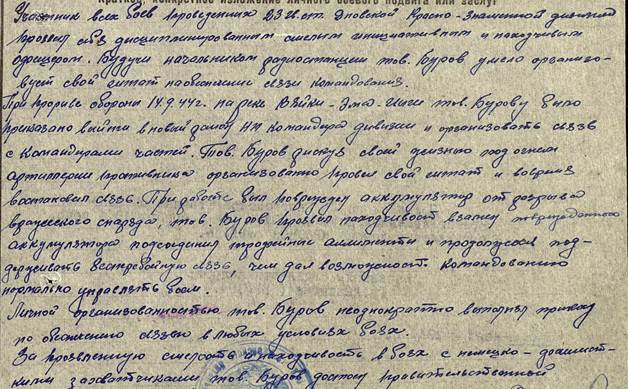 Краткое, конкретное изложение личного боевого подвига или заслуг
Участник всех боев проведенных 23 Кр.-Знаменной дивизией
проявил себя дисциплинированным смелым инициативным и находчивым
офицером. Будучи начальником радиостанции тов. Буров умело организо-
вует свой на обеспечение связи командования.
При прорыве обороны 14.9.44г. на реке Вяйки-Эма-Иыги тов. Бурову было
приказано выйти в новый НП командира дивизии и организовать связь
с командирами частей. Тов. Буров рискуя своей жизнью под огнем
артиллерии противника организованно провел свой и вовремя
востановил связь. При работе был поврежден аккумулятор от разрыва
вражеского снаряда, тов. Буров проявил находчивость взамен поврежденного
аккумулятора подсоединил элименты и продолжал под-
держивать безперебойную связь, чем дал возможность командованию
нормально управлять боем.
Личной организованностью тов. Буров неоднократно выполнял приказы
по обеспечению связью в любых условиях боя.
За проявленную смелость и находчивость в боях с немецко-фашист-
скими захватчиками тов. Буров достоин правительственной